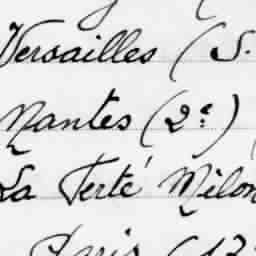 Versailles (S.
Nantes (2e)
La Ferté Milon
Paris (13